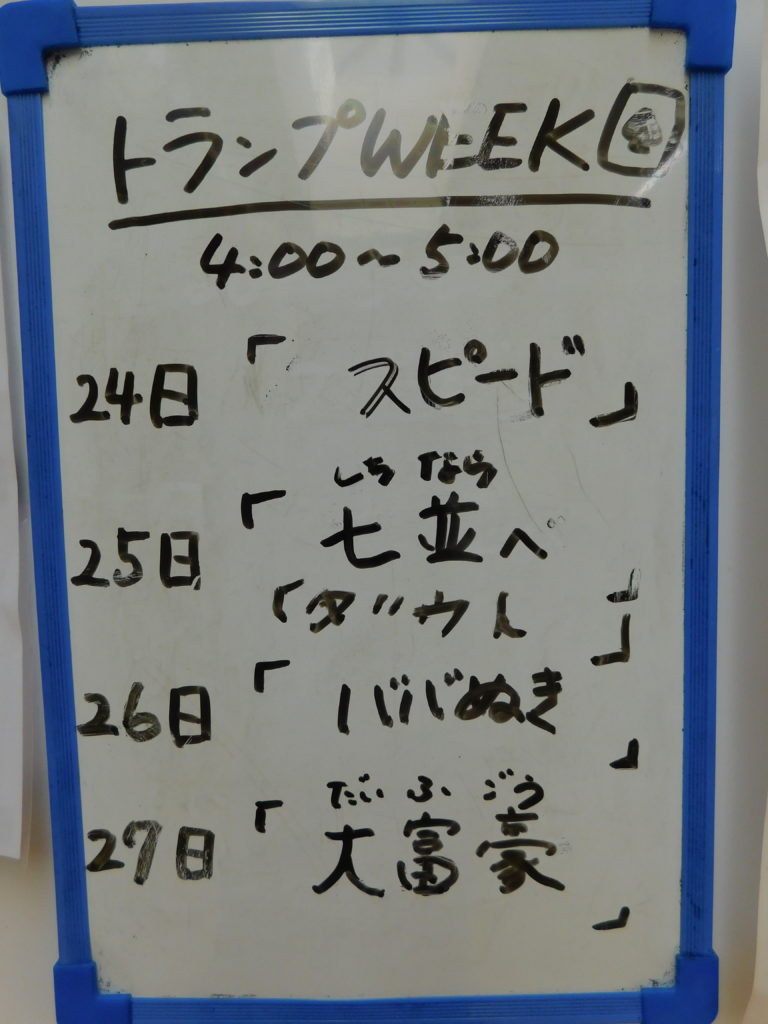 トランプWEEK
4:00～5:00
24日 「 スピード 」
しち なら
25日 「 七並べ 」
「ダウト 」
26日 「 ババぬき 」
だい ふ ごう
27日 「 大富豪 」